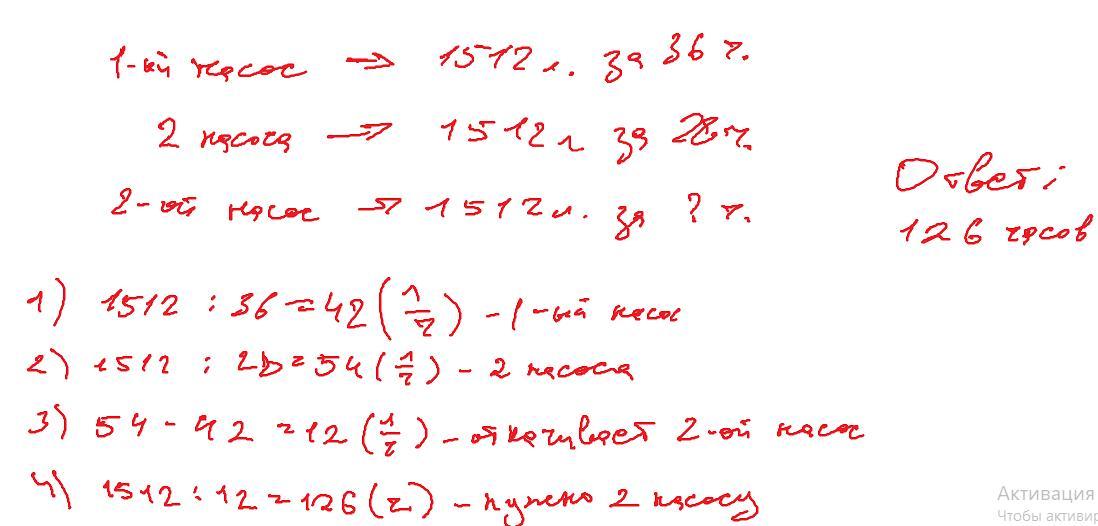 1-ый насос → 1512 л. за 36 ч.
2 насоса → 1512 л за 28 ч.
2-ой насос → 1512 л. за ? ч.
Ответ:
126 часов
1) 1512 : 36 = 42 (л/ч) - 1-ый насос
2) 1512 : 28 = 54 (л/ч) - 2 насоса
3) 54 - 42 = 12 (л/ч) - откачивает 2-ой насос
4) 1512 : 12 = 126 (ч) - нужно 2 насосу
Активация
Чтобы активир